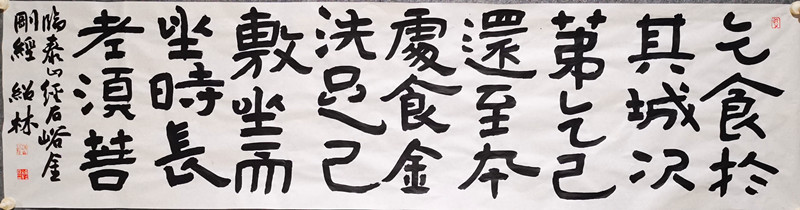 乞食於
其城次
苐乞已
還至本
處食金
洗足已
敷坐而
坐時長
老須菩
臨泰山經石峪金
剛經 紹林